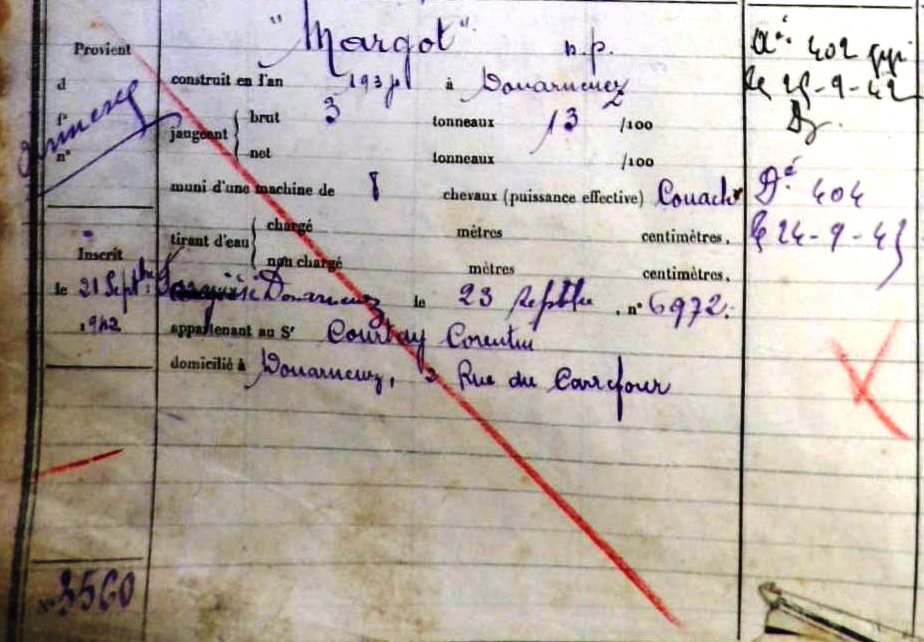 Provient
d
f°
n°
Inscrit
le 21 Septbre
1942
N° 3560
"Margot" n.p.
construit en l'an 193 à Douarnenez
jaugeant { brut 3 tonneaux 13 /100
net tonneaux /100
muni d'une machine de 8 chevaux (puissance effective) Couach
tirant d'eau { chargé mètres centimètres.
non chargé mètres centimètres.
Francisé Douarnenez le 23 Septbre . n° 6972.
appartenant au Sr Courtay Corentin
domicilié à Douarnenez, 2 Rue du Carrefour
402
le 25-9-42
D.
Dé 404
le 24-9-43